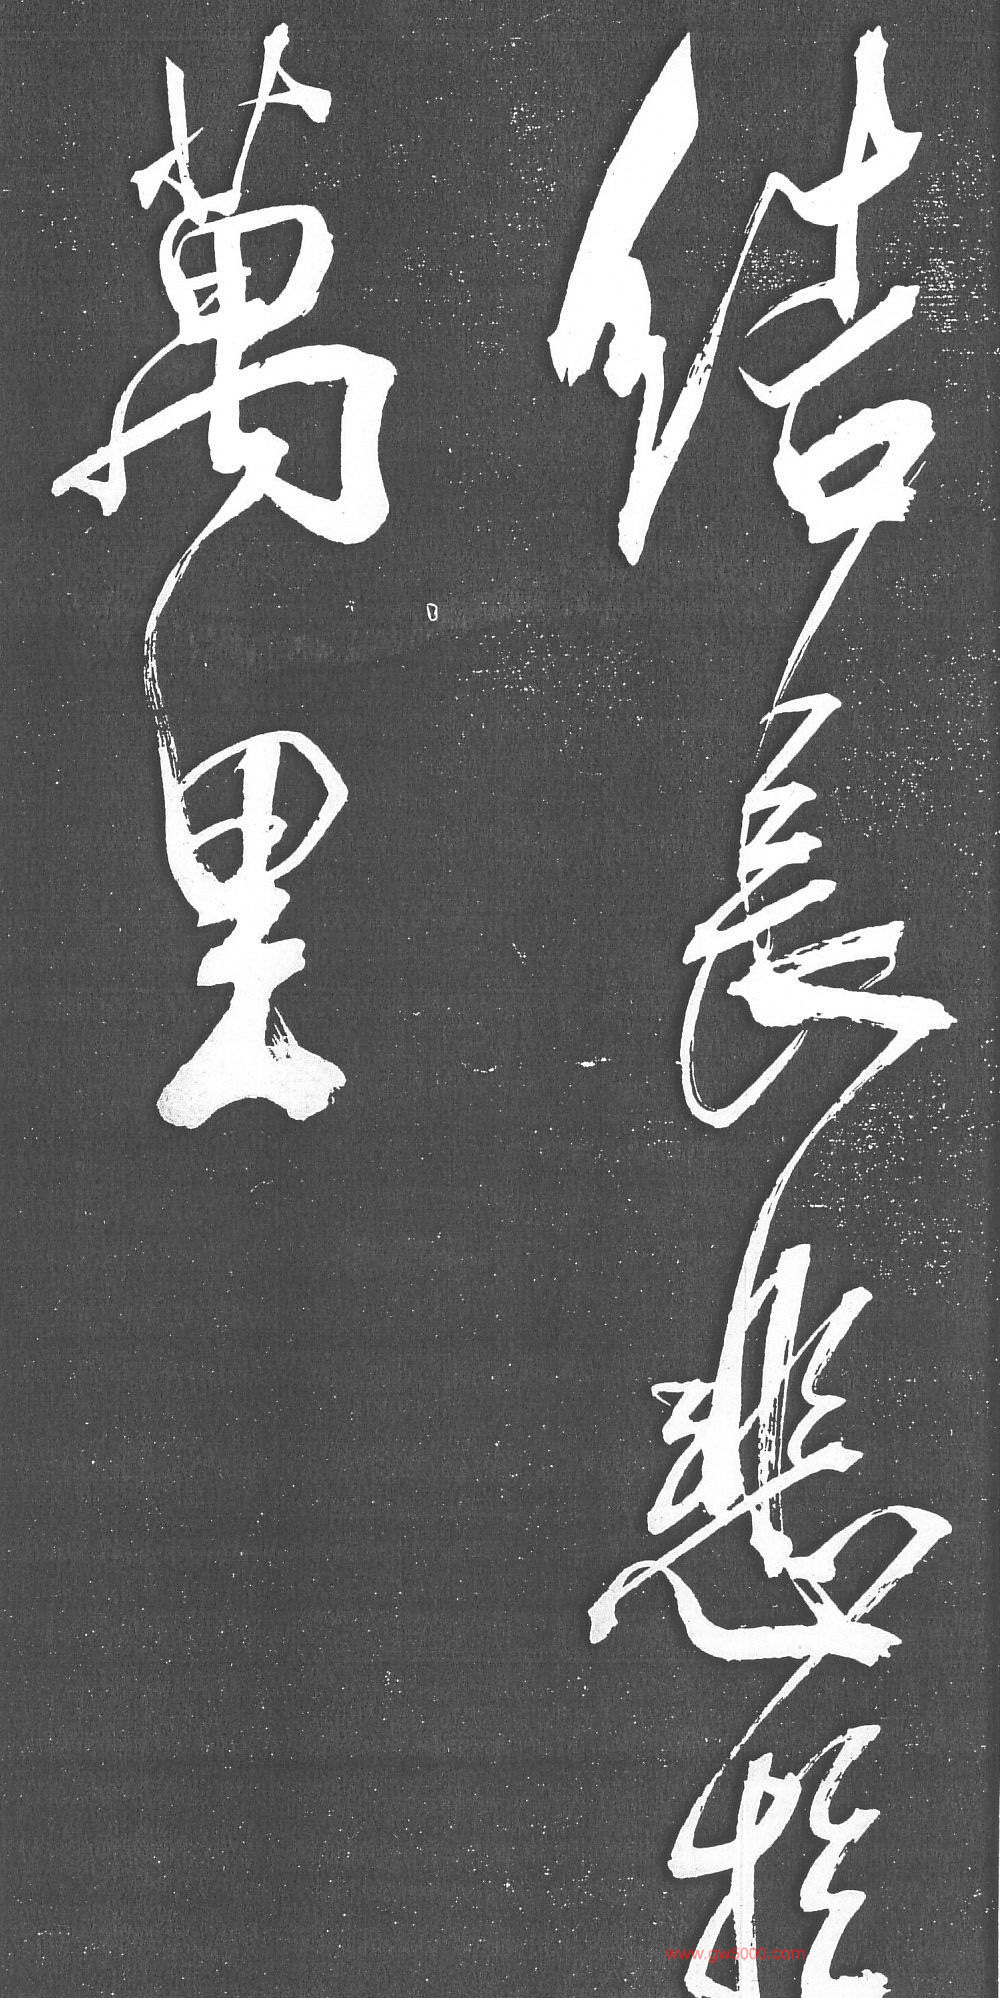 結長悲於
萬里
www.gw5000.com